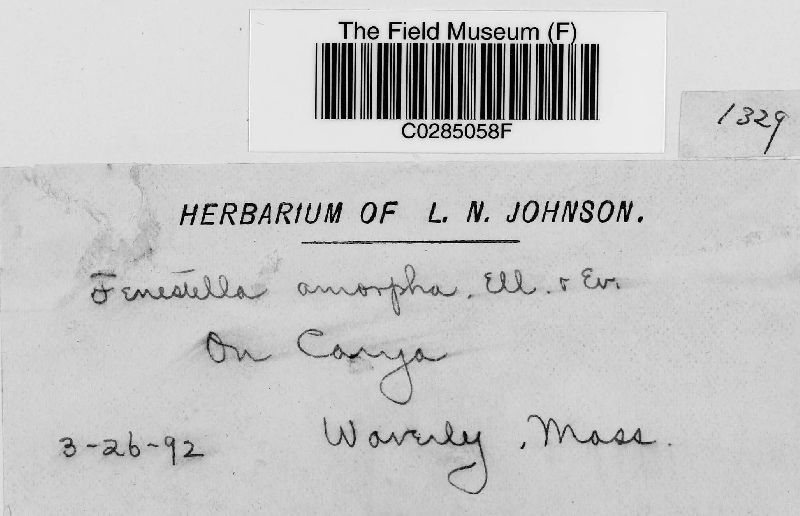 The Field Museum (F)
C0285058F
1329
HERBARIUM OF L. N. JOHNSON.
Fenestella amorpha. Ell. & Ev.
On Carya
3-26-92 Waverly, Mass.